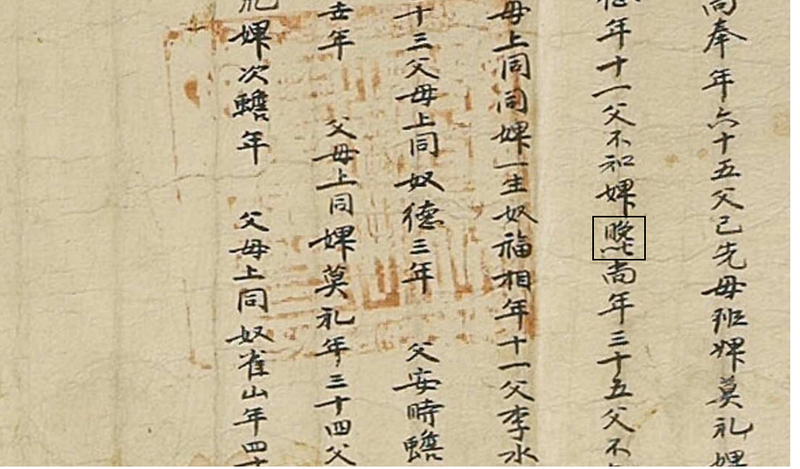 尚奉年六十五父已先母班婢莫礼婢
德年十一父不知婢尚年三十五父不
母上同同婢一生奴福相年十一父李水
十三父母上同奴德三年 父安時蟾
年 父母上同婢莫礼年三十四父
礼婢次蟾年 父母上同奴雀山年四十